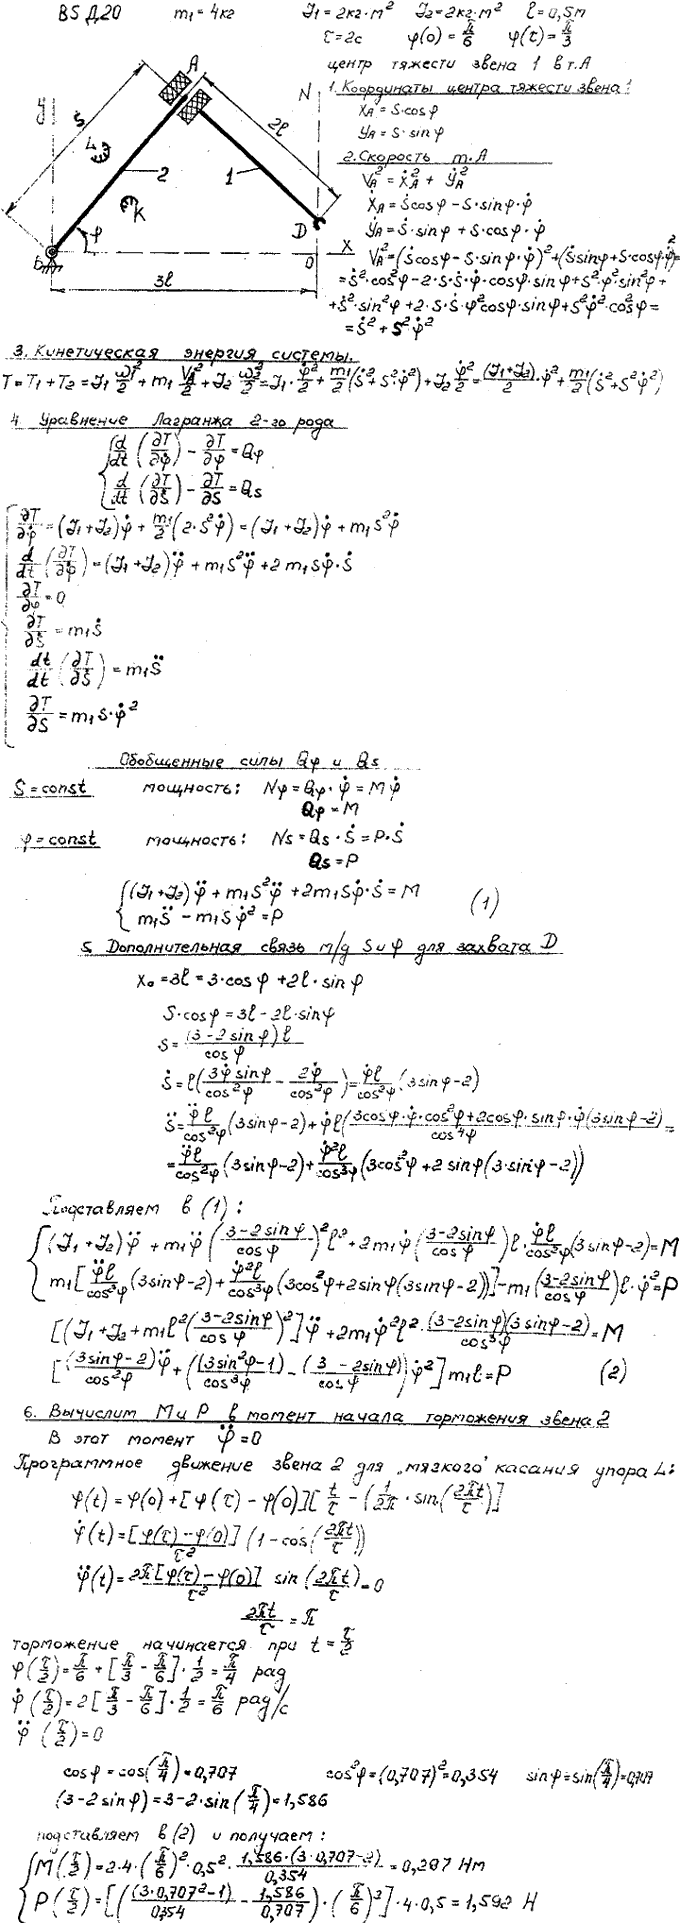 В5 Д20 m₁=4кг J₁=2кг·м² J₂=2кг·м² l=0,5м
τ=2с φ(0)=π/6 φ(τ)=π/3
центр тяжести звена 1 в т.А
1. Координаты центра тяжести звена 1
X_A = S·cosφ
Y_A = S·sinφ
2. Скорость т.А
V_A² = Ẋ_A² + Ẏ_A²
Ẋ_A = Ṡcosφ - S·sinφ·φ̇
Ẏ_A = Ṡ·sinφ + S·cosφ·φ̇
V_A² = (Ṡcosφ - S·sinφ·φ̇)² + (Ṡsinφ + S·cosφ·φ̇)² =
= Ṡ²·cos²φ - 2·S·Ṡ·φ̇·cosφ·sinφ + S²·φ̇²·sin²φ +
+ Ṡ²·sin²φ + 2·S·Ṡ·φ̇²cosφ·sinφ + S²φ̇²·cos²φ =
= Ṡ² + S²φ̇²
y
S
A
N
2l
L
2
1
K
D
φ
B
O
X
3l
3. Кинетическая энергия системы.
T = T₁ + T₂ = J₁ ω₁²/2 + m₁ V_A²/2 + J₂ ω₂²/2 = J₁·φ̇²/2 + m₁/2 (Ṡ² + S²·φ̇²) + J₂ φ̇²/2 = (J₁+J₂)/2·φ̇² + m₁/2 (Ṡ² + S²φ̇²)
4. Уравнение Лагранжа 2-го рода
d/dt (∂T/∂φ̇) - ∂T/∂φ = Qφ
d/dt (∂T/∂Ṡ) - ∂T/∂S = Qs
∂T/∂φ̇ = (J₁+J₂)φ̇ + m₁/2 (2·S²φ̇) = (J₁+J₂)φ̇ + m₁S²φ̇
d/dt (∂T/∂φ̇) = (J₁+J₂)φ̈ + m₁S²φ̈ + 2m₁Sφ̇·Ṡ
∂T/∂φ = 0
∂T/∂Ṡ = m₁Ṡ
dt/dt (∂T/∂Ṡ) = m₁S̈
∂T/∂S = m₁S·φ̇²
Обобщенные силы Qφ и Qs
S = const мощность: Nφ = Qφ·φ̇ = Mφ̇
Qφ = M
φ = const мощность: Ns = Qs·Ṡ = P·Ṡ
Qs = P
(J₁+J₂)φ̈ + m₁S²φ̈ + 2m₁Sφ̇·Ṡ = M
m₁S̈ - m₁Sφ̇² = P (1)
5. Дополнительная связь м/д S и φ для захвата D
X₀ = 3l = 3·cosφ + 2l·sinφ
S·cosφ = 3l - 2l·sinφ
S = (3-2sinφ)l / cosφ
Ṡ = l(3φ̇sinφ/cos²φ - 2φ̇/cos²φ) = φ̇l/cos²φ (3sinφ-2)
S̈ = φ̈l/cos²φ (3sinφ-2) + φ̇l(3cosφ·φ̇·cos²φ + 2cosφ·sinφ·φ̇(3sinφ-2) / cos⁴φ =
= φ̈l/cos²φ (3sinφ-2) + φ̇²l/cos³φ (3cos²φ + 2sinφ(3·sinφ-2))
Подставляем в (1):
(J₁+J₂)φ̈ + m₁φ̈ ((3-2sinφ)/cosφ)² l² + 2m₁φ̇ ((3-2sinφ)/cosφ) l·φ̇l/cos²φ (3sinφ-2) = M
m₁[φ̈l/cos²φ (3sinφ-2) + φ̇²l/cos³φ (3cos²φ + 2sinφ(3sinφ-2))] - m₁((3-2sinφ)/cosφ) l·φ̇² = P
[(J₁+J₂+m₁l²((3-2sinφ)/cosφ)²]φ̈ + 2m₁φ̇²l²·(3-2sinφ)(3sinφ-2)/cos³φ = M
[(3sinφ-2)φ̈/cos²φ + ((3sin²φ-1)/cos³φ - (3-2sinφ)/cosφ)φ̇²]m₁l = P (2)
6. Вычислит M и P в момент начала торможения звена 2
В этот момент φ̈ = 0
Программное движение звена 2 для „мягкого" касания упора L:
φ(t) = φ(0) + [φ(τ) - φ(0)][t/τ - (1/2π·sin(2πt/τ)]
φ̇(t) = [φ(τ)-φ(0)]/τ² (1-cos(2πt/τ))
φ̈(t) = 2π[φ(τ)-φ(0)]/τ² sin(2πt/τ) = 0
2πt/τ = π
торможение начинается при t = τ/2
φ(τ/2) = π/6 + [π/3 - π/6]·1/2 = π/4 рад
φ̇(τ/2) = 2[π/3 - π/6]·1/2 = π/6 рад/с
φ̈(τ/2) = 0
cosφ = cos(π/4) = 0,707 cos²φ = (0,707)² = 0,354 sinφ = sin(π/4) = 0,707
(3-2sinφ) = 3-2·sin(π/4) = 1,586
подставляем в (2) и получаем:
M(τ/2) = 2·4·(π/6)²·0,5²·1,586·(3·0,707-2)/0,354 = 0,297 Нм
P(τ/2) = [((3·0,707²-1)/0,354 - 1,586/0,707)·(π/6)²]·4·0,5 = 1,592 Н